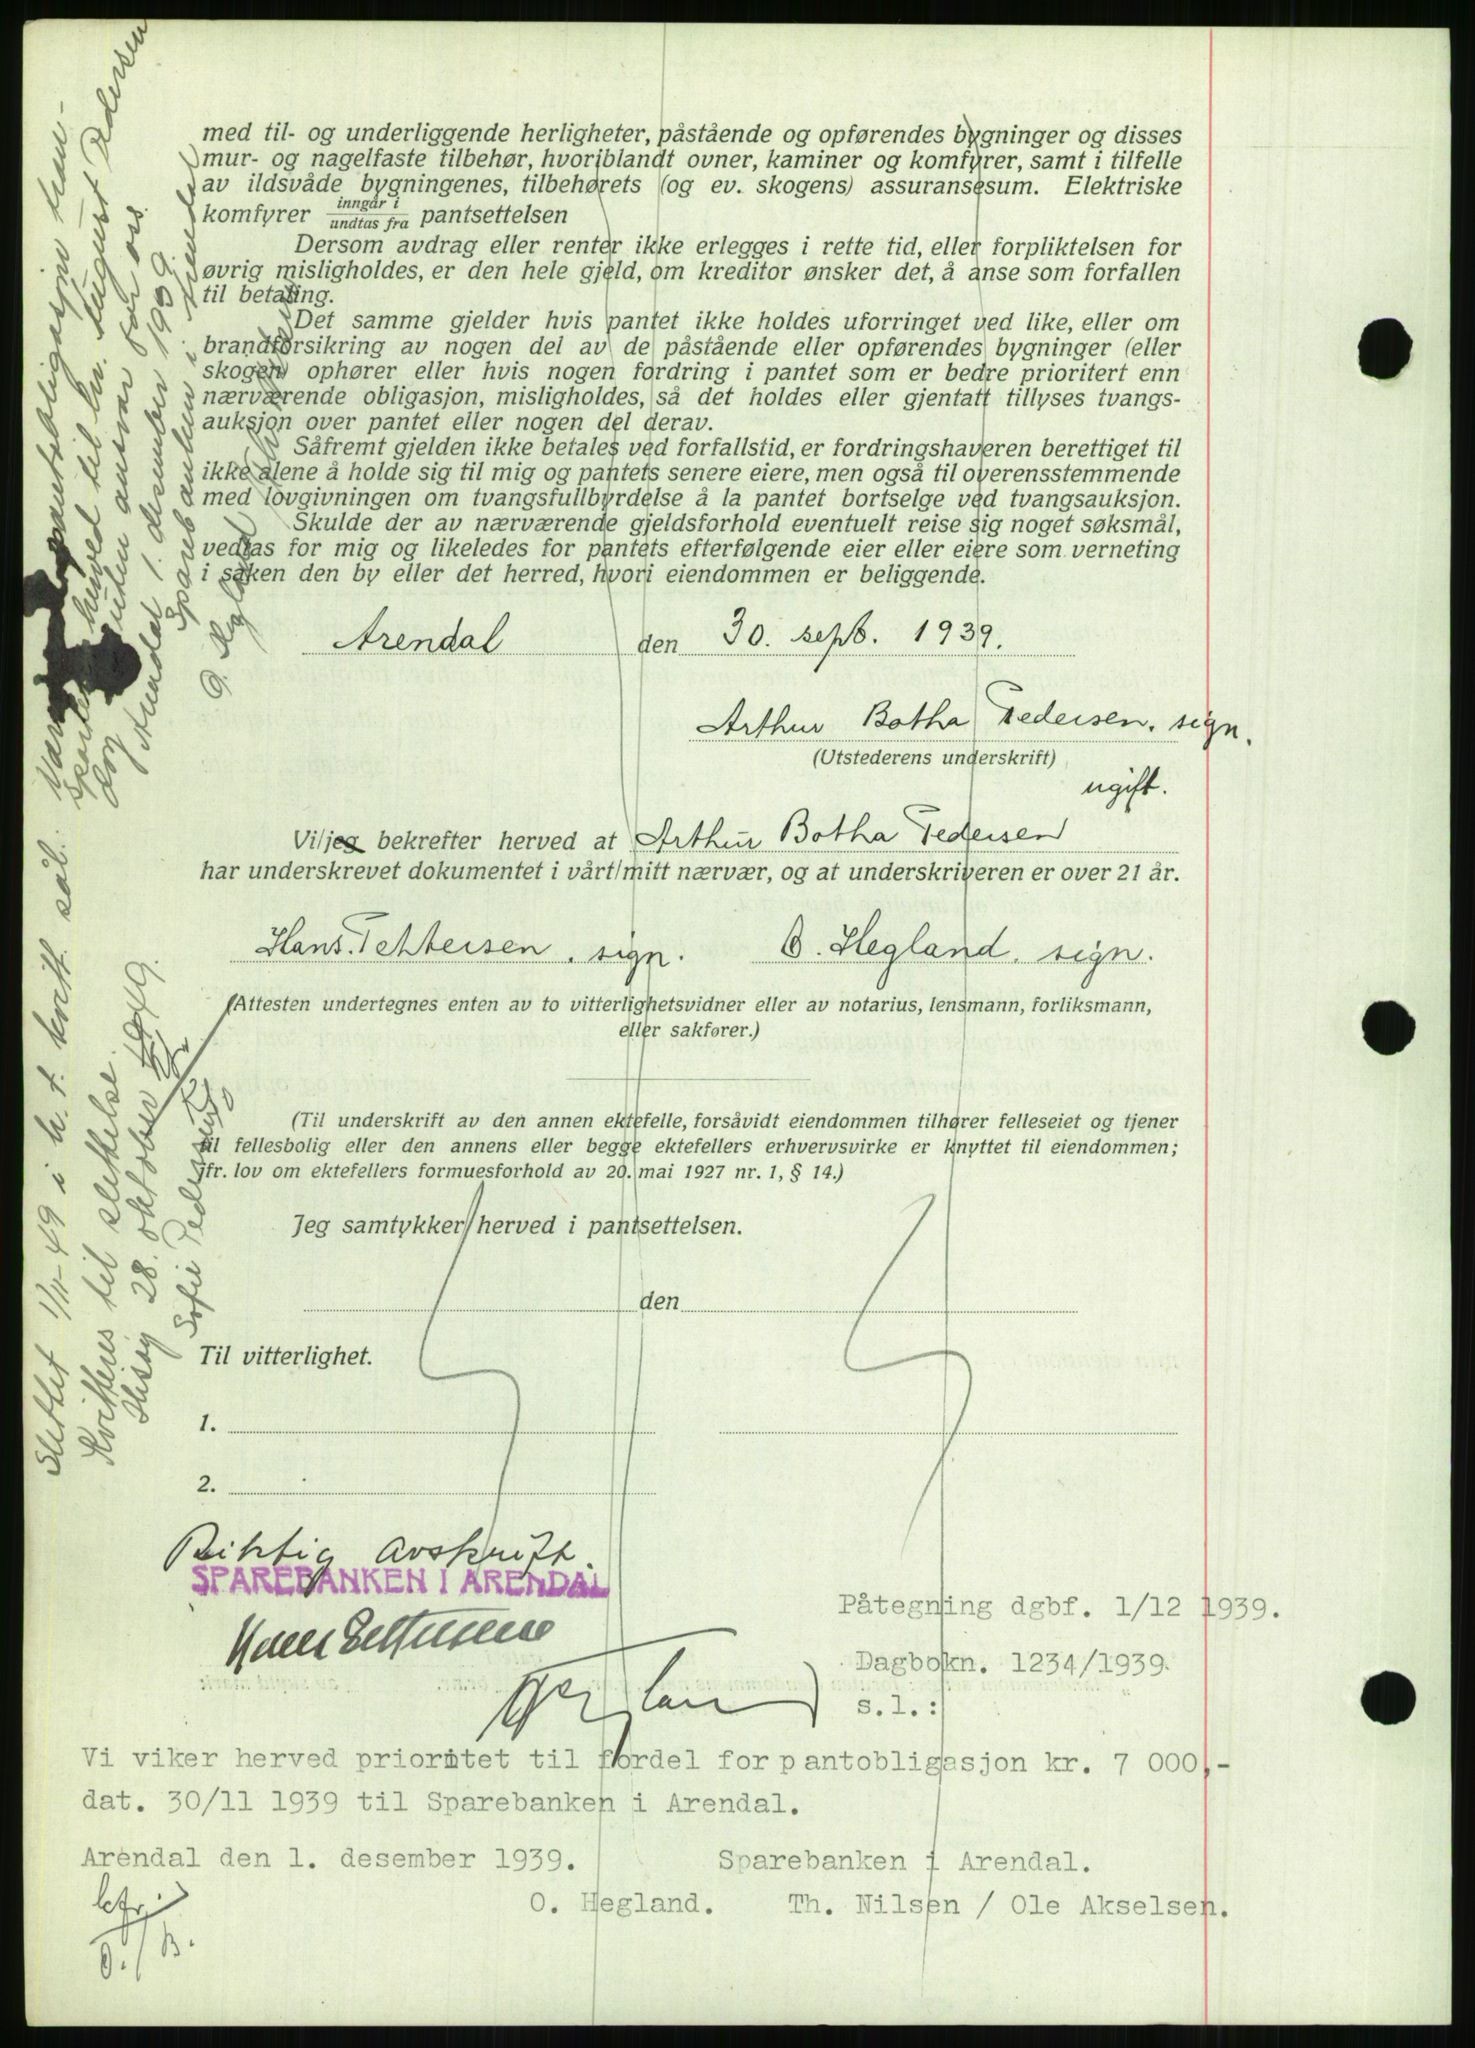 med til- og underliggende herligheter, påstående og opførendes bygninger og disses
mur- og nagelfaste tilbehør, hvoriblandt ovner, kaminer og komfyrer, samt i tilfelle
av ildsvåde bygningenes, tilbehørets (og ev. skogens) assuransesum. Elektriske
komfyrer inngår i / undtas fra pantsettelsen
Dersom avdrag eller renter ikke erlegges i rette tid, eller forpliktelsen for
øvrig misligholdes, er den hele gjeld, om kreditor ønsker det, å anse som forfallen
til betaling.
Det samme gjelder hvis pantet ikke holdes uforringet ved like, eller om
brandforsikring av nogen del av de påstående eller opførendes bygninger (eller
skogen) ophører eller hvis nogen fordring i pantet som er bedre prioritert enn
nærværende obligasjon, misligholdes, så det holdes eller gjentatt tillyses tvangs-
auksjon over pantet eller nogen del derav.
Såfremt gjelden ikke betales ved forfallstid, er fordringshaveren berettiget til
ikke alene å holde sig til mig og pantets senere eiere, men også til overensstemmende
med lovgivningen om tvangsfullbyrdelse å la pantet bortselge ved tvangsauksjon.
Skulde der av nærværende gjeldsforhold eventuelt reise sig noget søksmål,
vedtas for mig og likeledes for pantets efterfølgende eier eller eiere som verneting
i saken den by eller det herred, hvori eiendommen er beliggende.
Arendal den 30. sept. 1939.
Arthur Botha Pedersen. sign.
(Utstederens underskrift)
ugift.
Vi/jeg bekrefter herved at Arthur Botha Pedersen
har underskrevet dokumentet i vårt/mitt nærvær, og at underskriveren er over 21 år.
Hans. Pettersen. sign. O. Hegland. sign.
(Attesten undertegnes enten av to vitterlighetsvidner eller av notarius, lensmann, forliksmann,
eller sakfører.)
(Til underskrift av den annen ektefelle, forsåvidt eiendommen tilhører felleseiet og tjener
til fellesbolig eller den annens eller begge ektefellers erhvervsvirke er knyttet til eiendommen;
jfr. lov om ektefellers formuesforhold av 20. mai 1927 nr. 1, § 14.)
Jeg samtykker herved i pantsettelsen.
den
Til vitterlighet.
1.
2.
Riktig avskrift.
SPAREBANKEN I ARENDAL
Påtegning dgbf. 1/12 1939.
Dagbokn. 1234/1939
s.l.:
Vi viker herved prioritet til fordel for pantobligasjon kr. 7 000,-
dat. 30/11 1939 til Sparebanken i Arendal.
Arendal den 1. desember 1939. Sparebanken i Arendal.
O. Hegland. Th. Nilsen / Ole Akselsen.
Slettet 1/11-49 i h. t. kvitt. sål.
Kvitteres til slettelse.
Hisøy 28. oktober 1949.
Sofie Pedersen
pantobligasjon tran-
sporteres herved til hr. August Pedersen
dog uten ansvar for oss.
Arendal 1. desember 1939.
Sparebanken i Arendal
O. Hegland